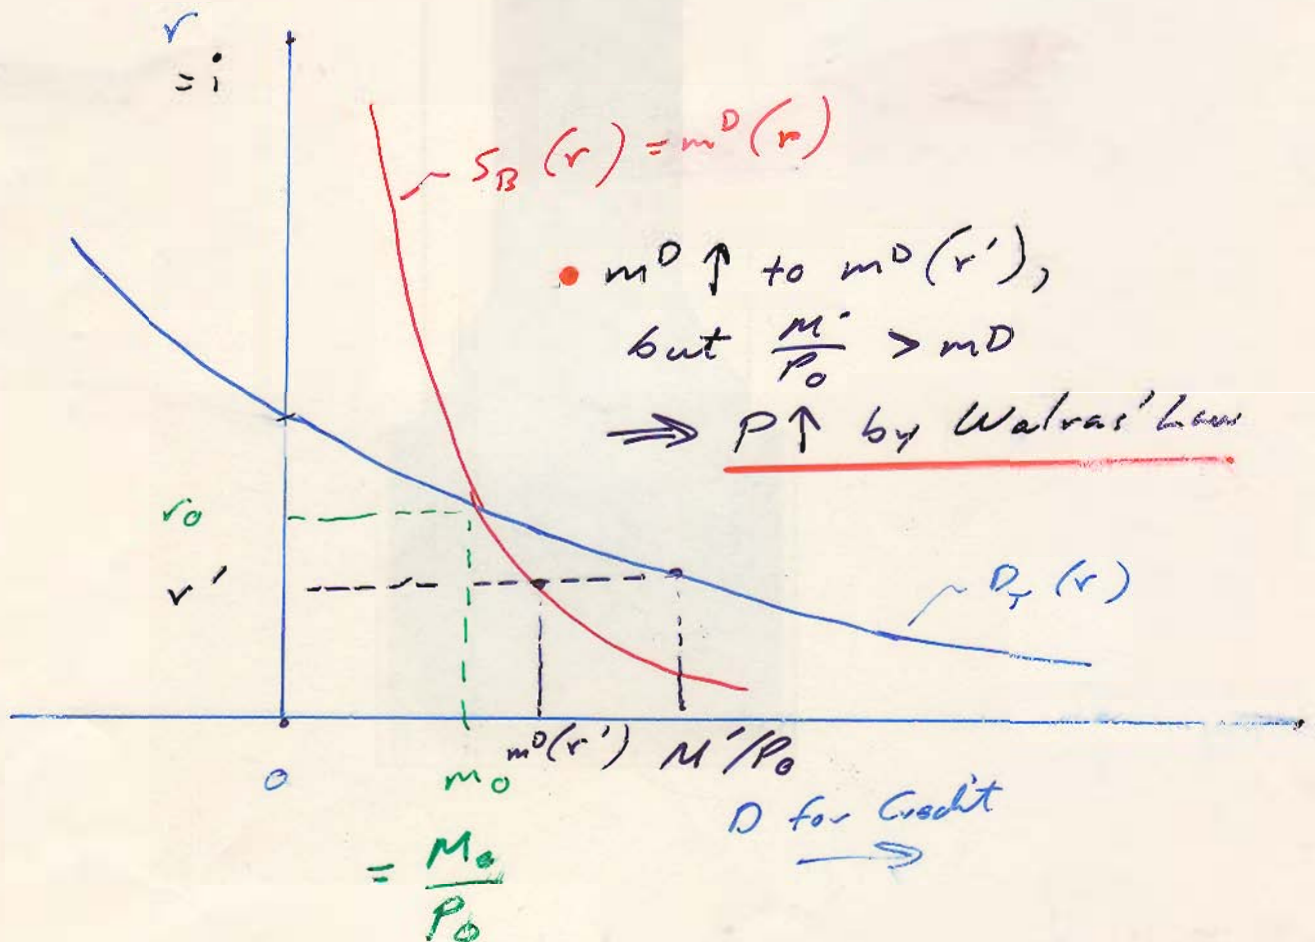 r
= i
S_B (r) = m^D (r)
• m^D ↑ to m^D (r'),
but M'/P_0 > m^D
⇒ P↑ by Walras' Law
r_0
r'
D_T (r)
m^D(r') M'/P_0
0 m_0
D for Credit
→
= M_0/P_0